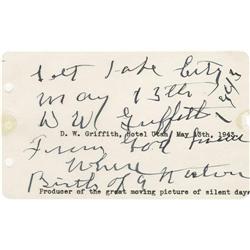 Salt Lake City
May 13th 1943
D W Griffith
D. W. Griffith, Hotel Utah, May 13th, 1943.
From
Where
Birth of a Nation
Producer of the great moving picture of silent days